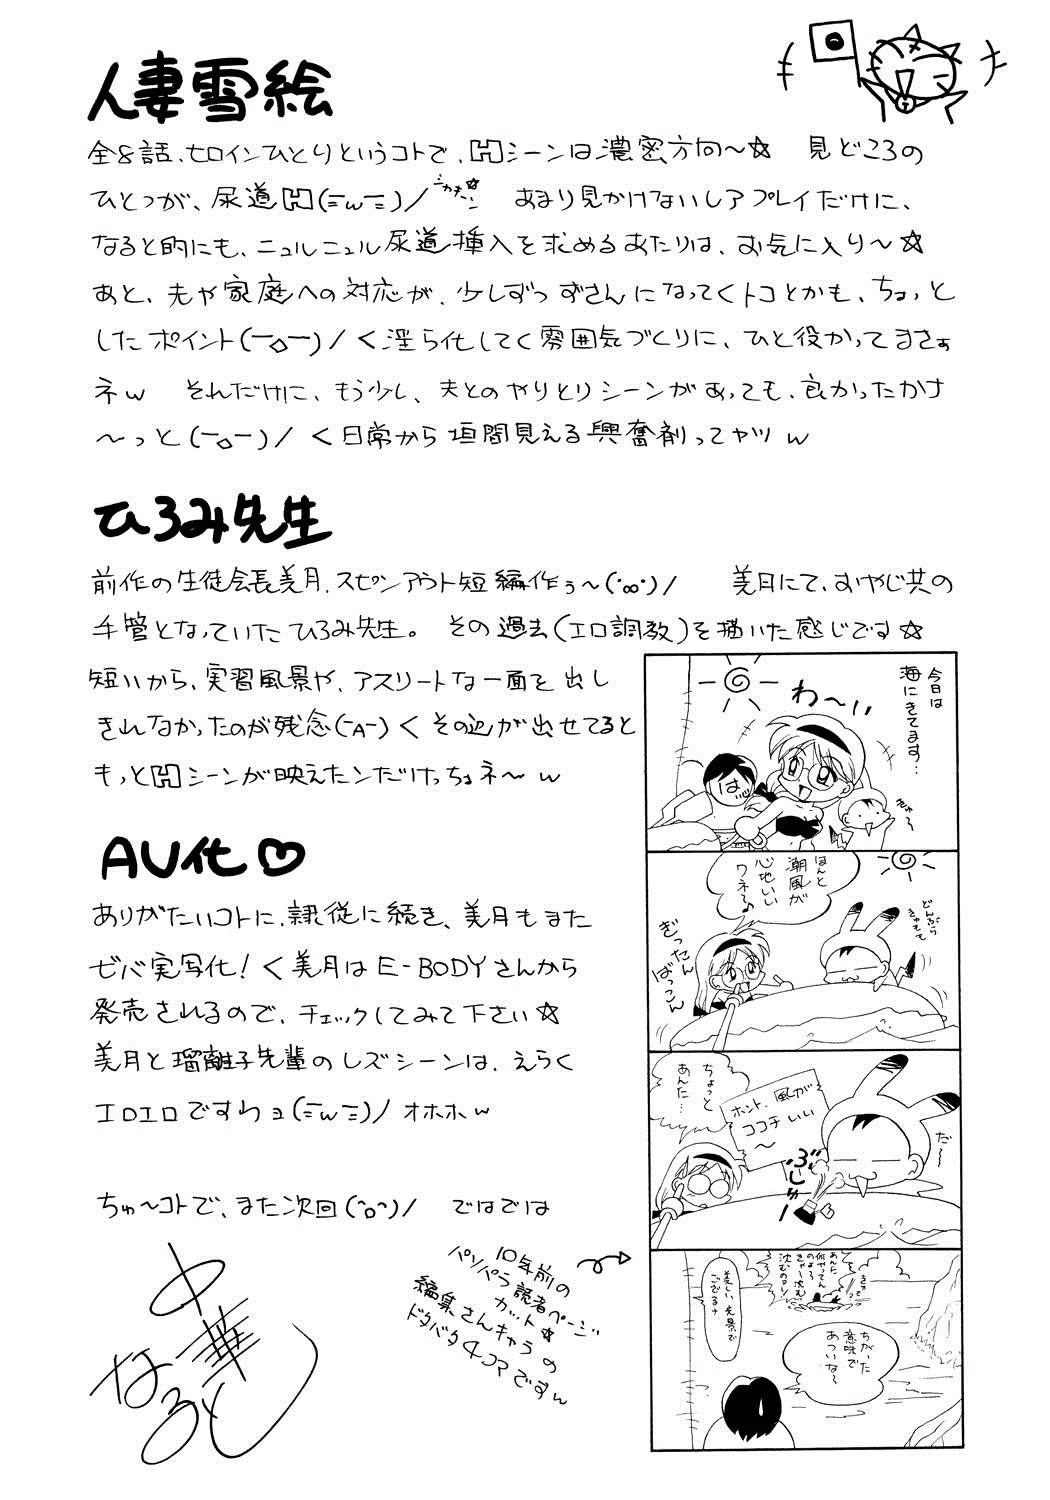 人妻雪絵
全8話、ヒロインひとりというコトで、Hシーンは濃密方向～☆　見どころの
ひとつが、尿道H(ﾆwﾆ)/　あまり見かけないレアプレイだけに、
なると的にも、ニュルニュル尿道挿入を求めるあたりは、お気に入り～☆
あと、夫や家庭への対応が、少しずつずさんになってくトコとかも、ちょっと
したポイント(￣o￣)/ く淫ら化してく雰囲気づくりに、ひと役かってまさぁ
ネw　それだけに、もう少し、夫とのやりとりシーンがあっても、良かったかナ
～っと(￣o￣)/ く日常から垣間見える興奮剤ってヤツw
ひろみ先生
前作の生徒会長美月、スピンアウト短編作ぅ～(･∞･)/　美月にて、おやじ共の
手管となっていたひろみ先生。その過去(エロ調教)を描いた感じです☆
短いから、実習風景や、アスリートな一面を出し
きれなかったのが残念(￣A￣) くその辺が出せてると
もっとHシーンが映えたンだけっちょネ～w
AV化♡
ありがたいコトに、隷従に続き、美月もまた
ゼバ実写化! く美月はE-BODYさんから
発売されるので、チェックしてみて下さい☆
美月と瑠離子先輩のレズシーンは、えらく
エロエロですわョ(ﾆwﾆ)/ オホホw
ちゅ～コトで、また次回(^o^)/　ではでは
中華なると
10年前の
パソパラ読者ページ
カット☆
編集さんキャラの
ドタバタ4コマですw
今日は
海にきてます…
わ～い
はい
きゅ～
ほんと
潮風が
心地いい
ワネ～♪
どんぶら
きゅもも
ぎったん
ばっこん
ちょっと
あんた…
ホント、風が
ココチいい
～
だ～
ぶしゅー!
美しい光景で
ござるナ
あんた
何やってん
のよ～
きゃ～沈む
沈むのョ～!
ちがった
意味で
あついな～